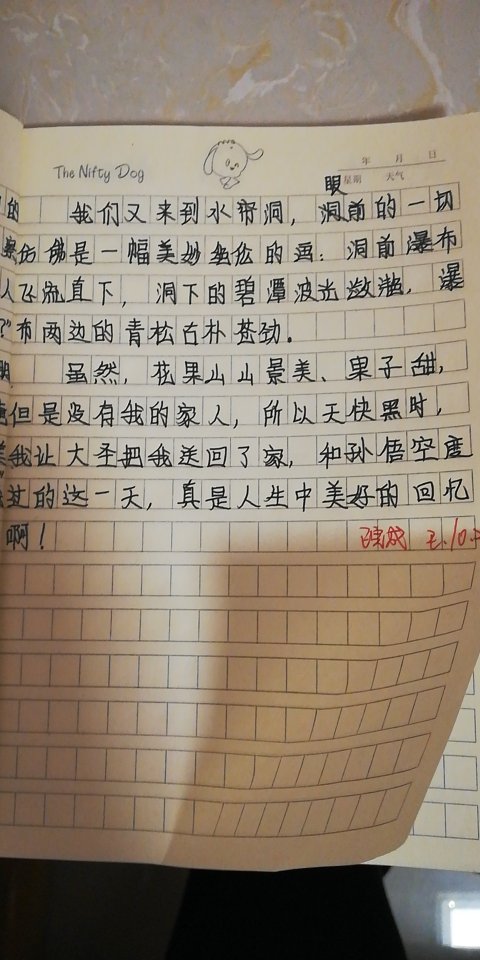 The Nifty Dog
年 月 日
星期 天气
的 我们又来到水帘洞，眼洞前的一切
仿佛是一幅美妙绝伦的画：洞前瀑布
人飞流直下，洞下的碧潭波光潋滟，瀑
?”布两边的青松古朴苍劲。
虽然，花果山山景美、果子甜，
但是没有我的家人，所以天快黑时，
美我让大圣把我送回了家，和孙悟空度
过的这一天，真是人生中美好的回忆
啊！